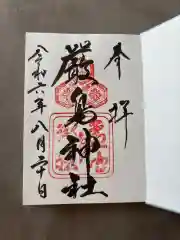 奉拝
厳島神社
令和六年八月二十日